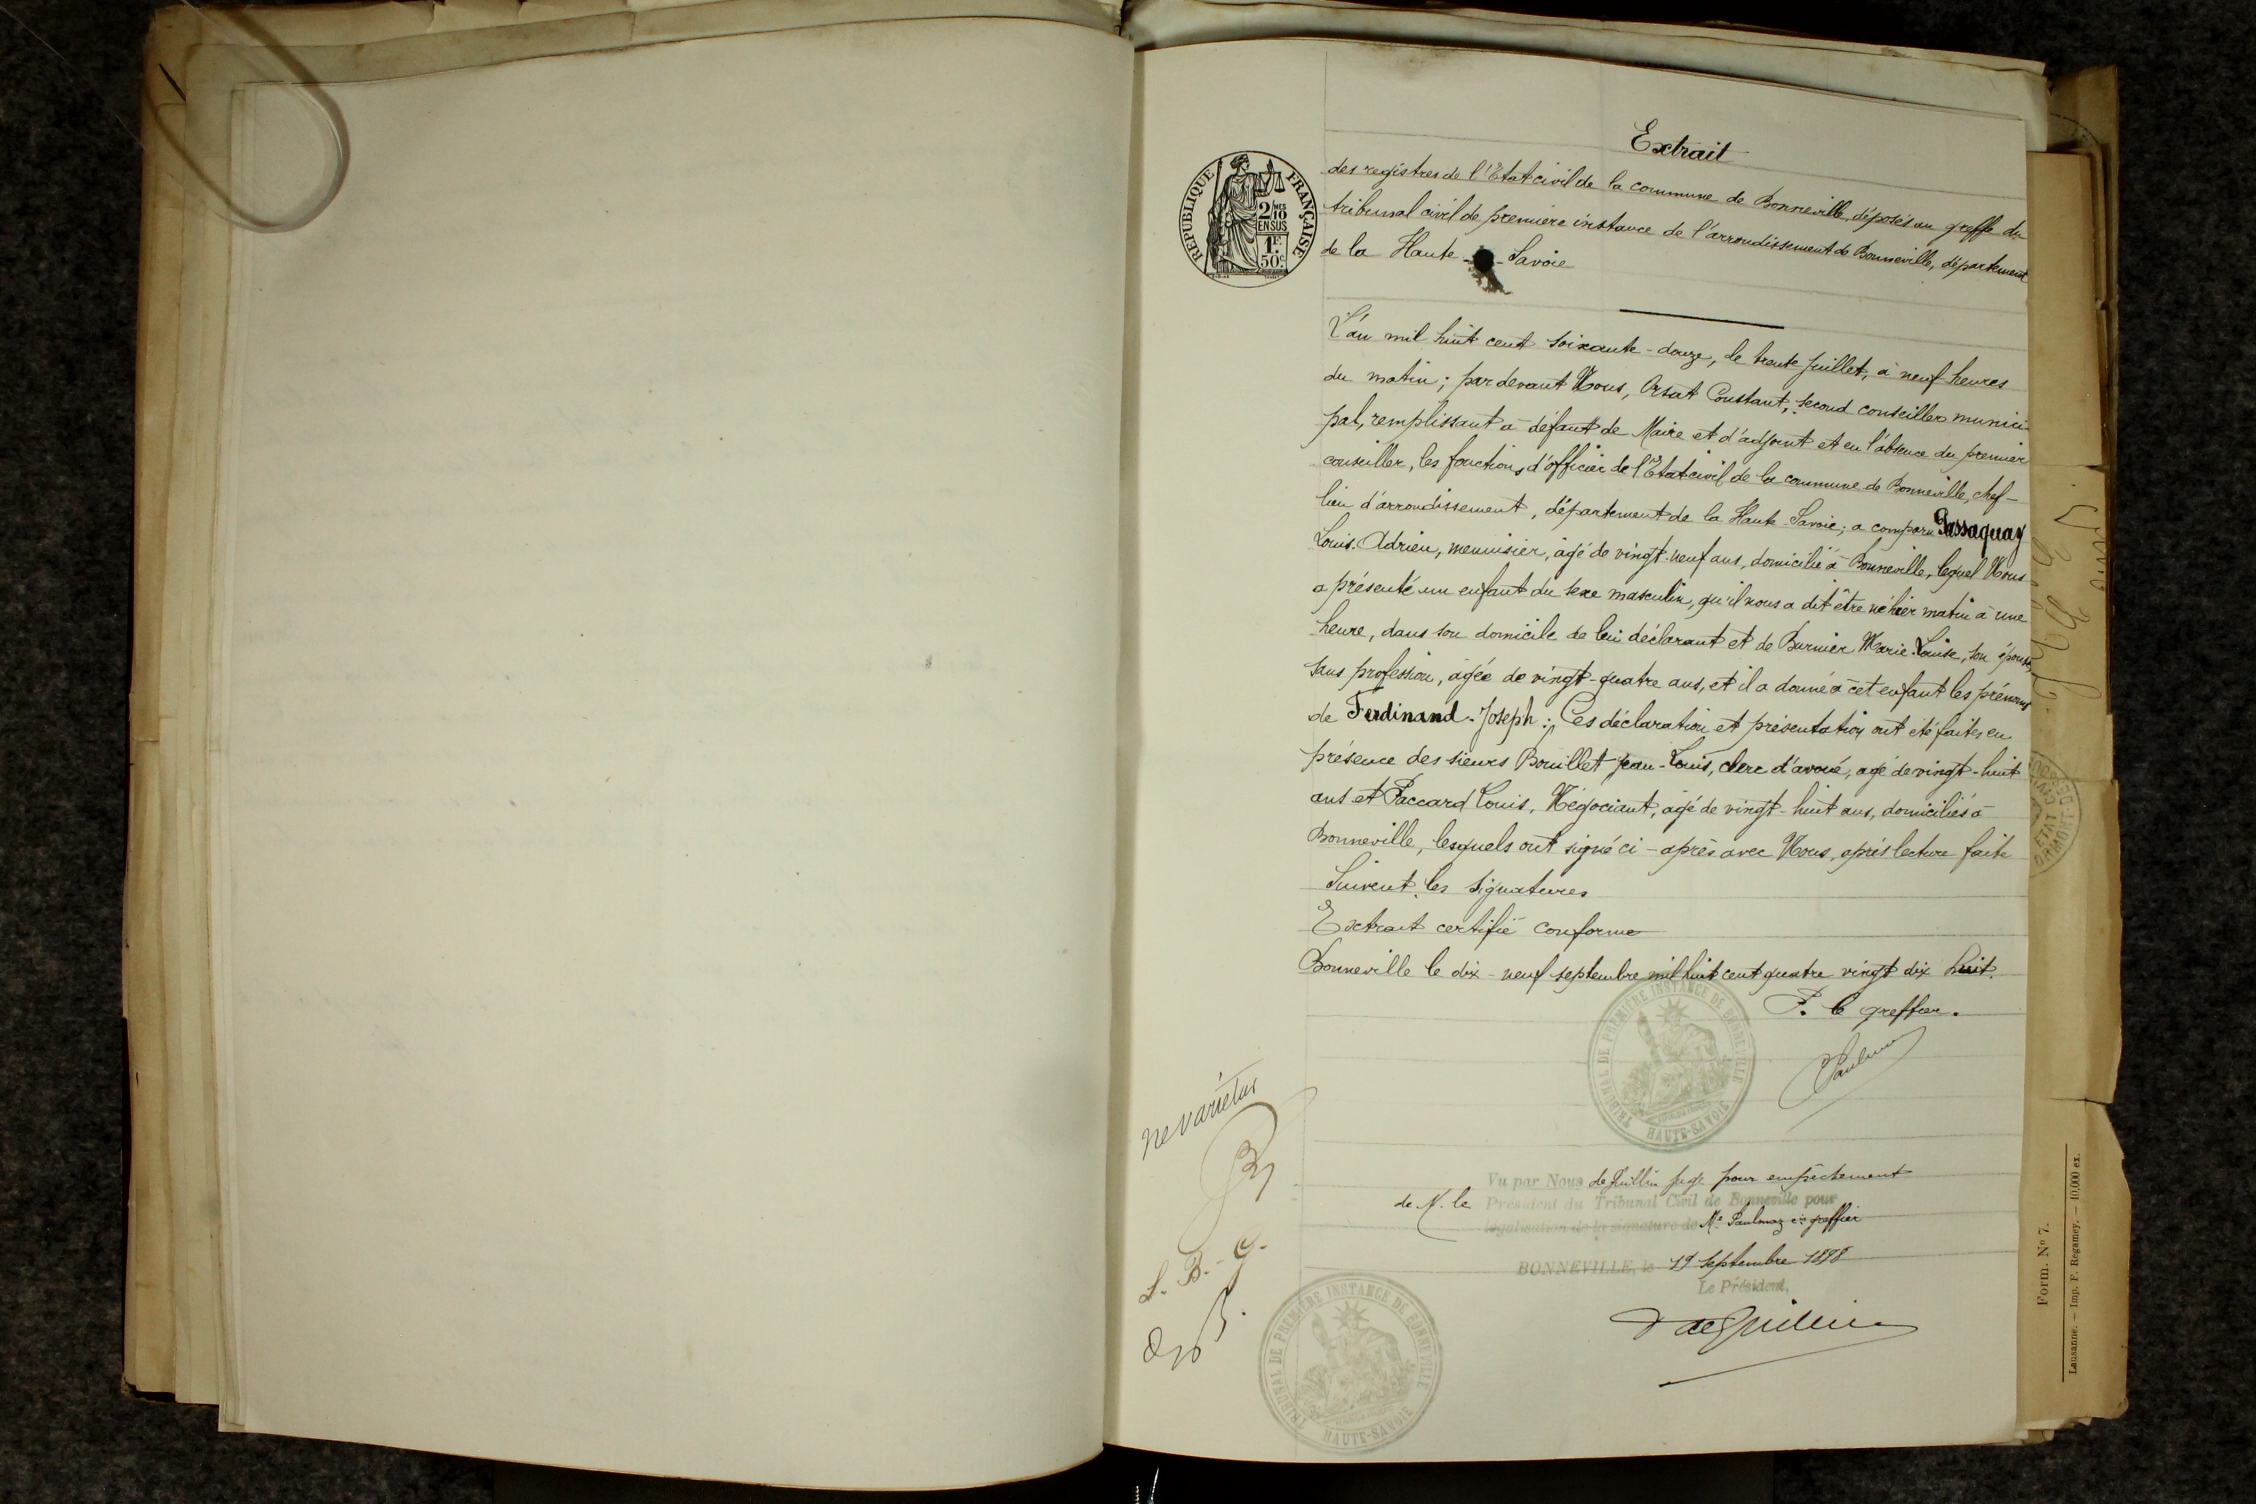 Extrait
des registres de l'Etat civil de la commune de Bonneville, déposés au greffe du
tribunal civil de première instance de l'arrondissement de Bonneville, département
de la Haute-Savoie
REPUBLIQUE FRANÇAISE
2/10 MES
EN SUS
1F.
50c.
L'an mil huit cent soixante-douze, le trente juillet, à neuf heures
du matin; par devant Nous, Orsat Constant, second conseiller munici
pal, remplissant à défaut de Maire et d'adjoint et en l'absence du premier
conseiller, les fonctions d'officier de l'Etat civil de la commune de Bonneville, chef-
lieu d'arrondissement, département de la Haute Savoie; a comparu Passaquay
Louis-Adrien, menuisier, âgé de vingt-neuf ans, domicilié à Bonneville, lequel Nous
a présenté un enfant du sexe masculin, qu'il nous a dit être né hier matin à une
heure, dans son domicile de lui déclarant et de Burnier Marie-Louise, son épouse,
sans profession, âgée de vingt-quatre ans, et il a donné à cet enfant les prénoms
de Ferdinand-Joseph; Ces déclaration et présentation ont été faites en
présence des sieurs Bouillet Jean-Louis, clerc d'avoué, agé de vingt-huit
ans et Paccard Louis, Négociant, âgé de vingt-huit ans, domiciliés à
Bonneville, lesquels ont signé ci-après avec Nous, après lecture faite
Suivent les signatures
Extrait certifié conforme
Bonneville le dix-neuf septembre mil huit cent quatre vingt dix huit.
P. le greffier.
TRIBUNAL DE PREMIÈRE INSTANCE DE BONNEVILLE
HAUTE-SAVOIE
ne varietur
L. B.-G.
Vu par Nous de juge pour empêchement
de M. le Président du Tribunal Civil de Bonneville pour
légalisation de la signature de Me Paulmaz greffier
BONNEVILLE, le 19 septembre 1898
Le Président,
TRIBUNAL DE PREMIÈRE INSTANCE DE BONNEVILLE
HAUTE-SAVOIE
ETAT CIVIL
ORMONT-DESSOUS
Form. No 7.
Lausanne. — Imp. F. Regamey. — 10,000 ex.